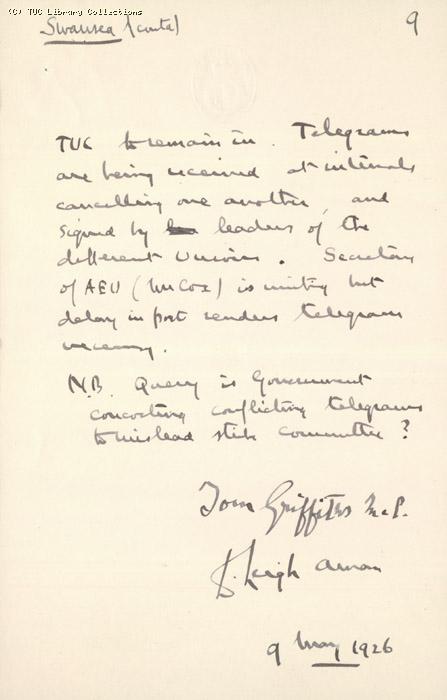 (C) TUC Library Collections
Swansea (contd) 9
TUC to remain in. Telegrams
are being received at intervals
cancelling one another, and
signed by leaders of the
different Unions. Secretary
of AEU (Mr Cox) is writing but
delay in post renders telegram
necessary.
N.B. Query is Government
concocting conflicting telegrams
to mislead strike committee?
Tom Griffiths M.P.
Leigh
9 May 1926